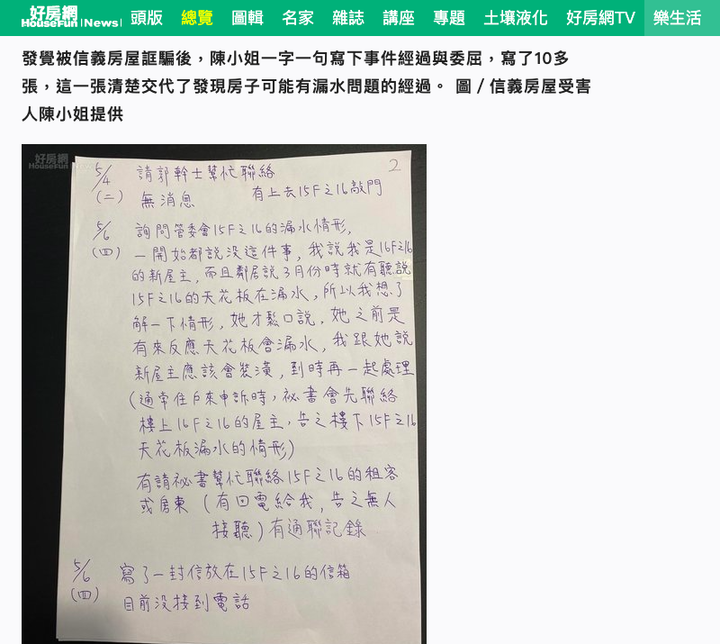 好房網
HouseFun News 頭版 總覽 圖輯 名家 雜誌 講座 專題 土壤液化 好房網TV 樂生活
發覺被信義房屋誆騙後，陳小姐一字一句寫下事件經過與委屈，寫了10多
張，這一張清楚交代了發現房子可能有漏水問題的經過。 圖／信義房屋受害
人陳小姐提供
好房網
HouseFun
2
5/4 請郭幹士幫忙聯絡
(二) 無消息 有上去15F之16敲門
5/6 詢問管委會15F之16的漏水情形,
(四) 一開始都說沒這件事，我說我是16F之16
的新屋主，而且鄰居說3月份時就有聽說
15F之16的天花板在漏水，所以我想了
解一下情形，她才鬆口說，她之前是
有來反應天花板會漏水，我跟她說
新屋主應該會裝潢，到時再一起處理
(通常住戶來申訴時，祕書會先聯絡
樓上16F之16的屋主，告之樓下15F之16
天花板漏水的情形)
有請祕書幫忙聯絡15F之16的租客
或房東 (有回電給我，告之無人
接聽) 有通聯記錄
5/6 寫了一封信放在15F之16的信箱
(四) 目前沒接到電話